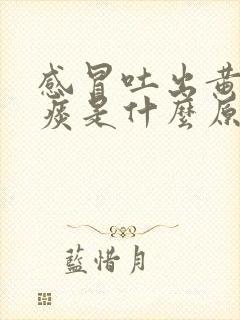 感冒吐出黄
痰是什麼原
藍惜月